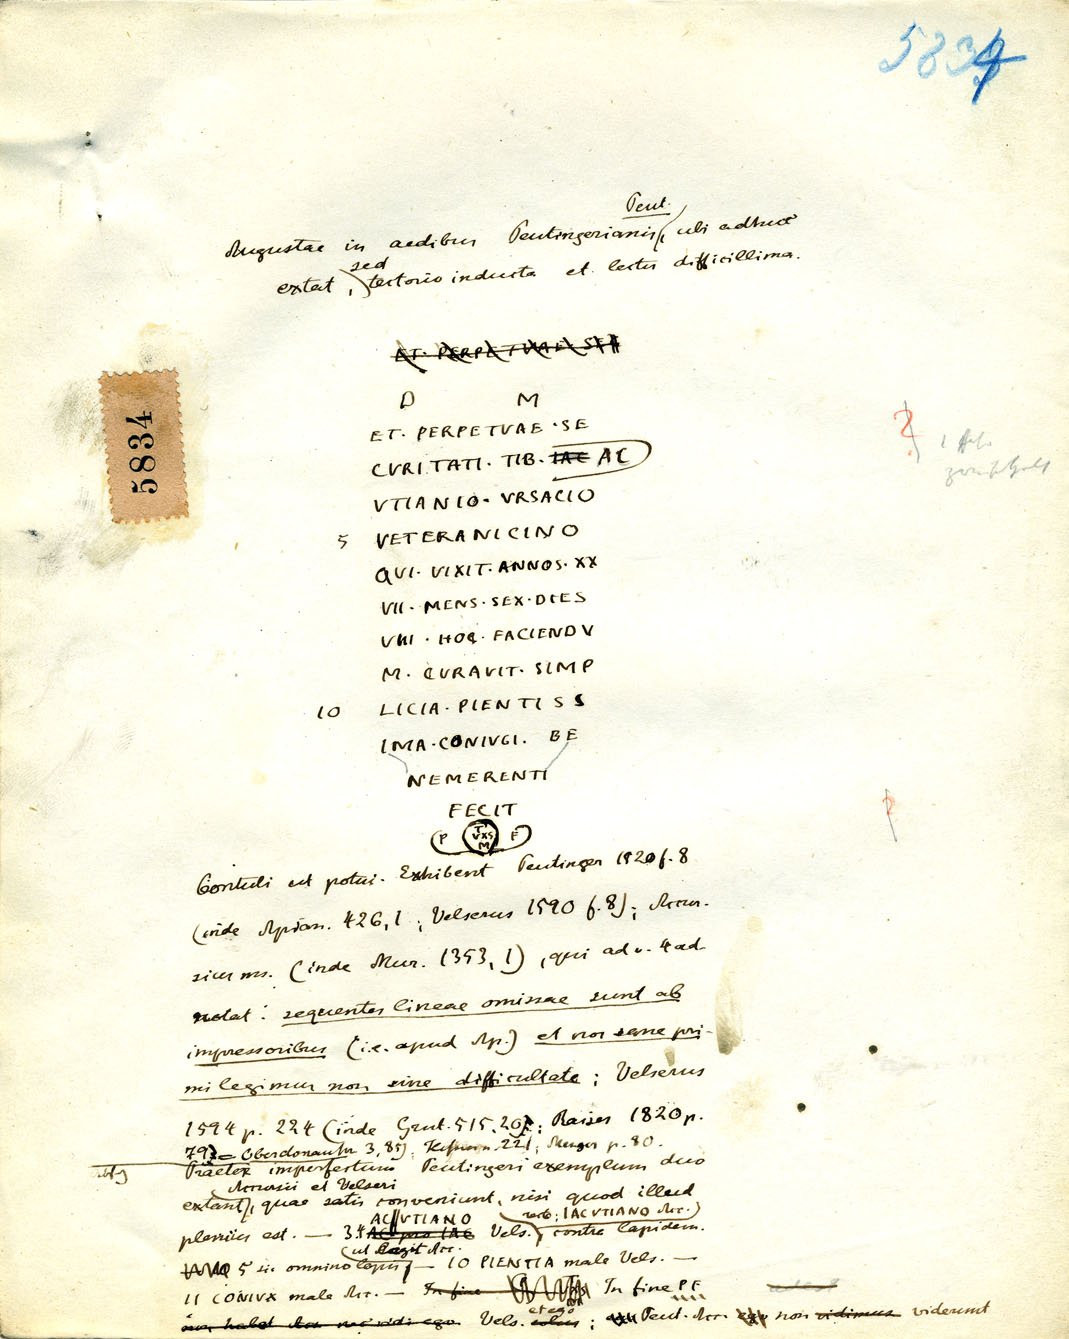 5834
Peut.
Augustae in aedibus Peutingerianis (ubi adhuc
sed
extat, tectorio inducta et lectu difficillima.
ET · PERPETVAE · SE
D M
ET · PERPETVAE · SE
CVRITATI · TIB · IAC AC
VTIANIO · VRSACIO
5 VETERANICINO
QVI · VIXIT · ANNOS · XX
VII · MENS · SEX · DIES
VIII · HOC · FACIENDV
M · CVRAVIT · SIMP
10 LICIA · PIENTISS
IMA · CONIVGI · BE
NEMERENTI
FECIT
P F
5834
Contuli ut potui. Exhibent Peutinger 1520 f. 8
(inde Apian. 426, 1; Velserus 1590 f. 8); Accur-
sius ms. (inde Mur. 1353, 1), qui ad v. 4 ad-
notat: sequentes lineae omissae sunt ab
impressoribus (i.e. apud Ap.) et nos sane pri-
mi legimus non sine difficultate; Velserus
1594 p. 224 (inde Grut. 515, 20); Raiser 1820 p.
79 = Oberdonaukr 3, 85; Hefner 221; Mezger p. 80.
Praeter imperfectum Peutingeri exemplum duo
Accursii et Velseri
extant, quae satis conveniunt, nisi quod illud
ACVTIANO IACVTIANO Acc.)
plenius est. — 3.4 Vels. contra lapidem.
ut Acc.
5 sic omnino — 10 PIENTIA male Vels. —
11 CONIVX male Acc. — In fine In fine P F
et ego
Vels. ; Peut. Acc. non vidimus viderunt